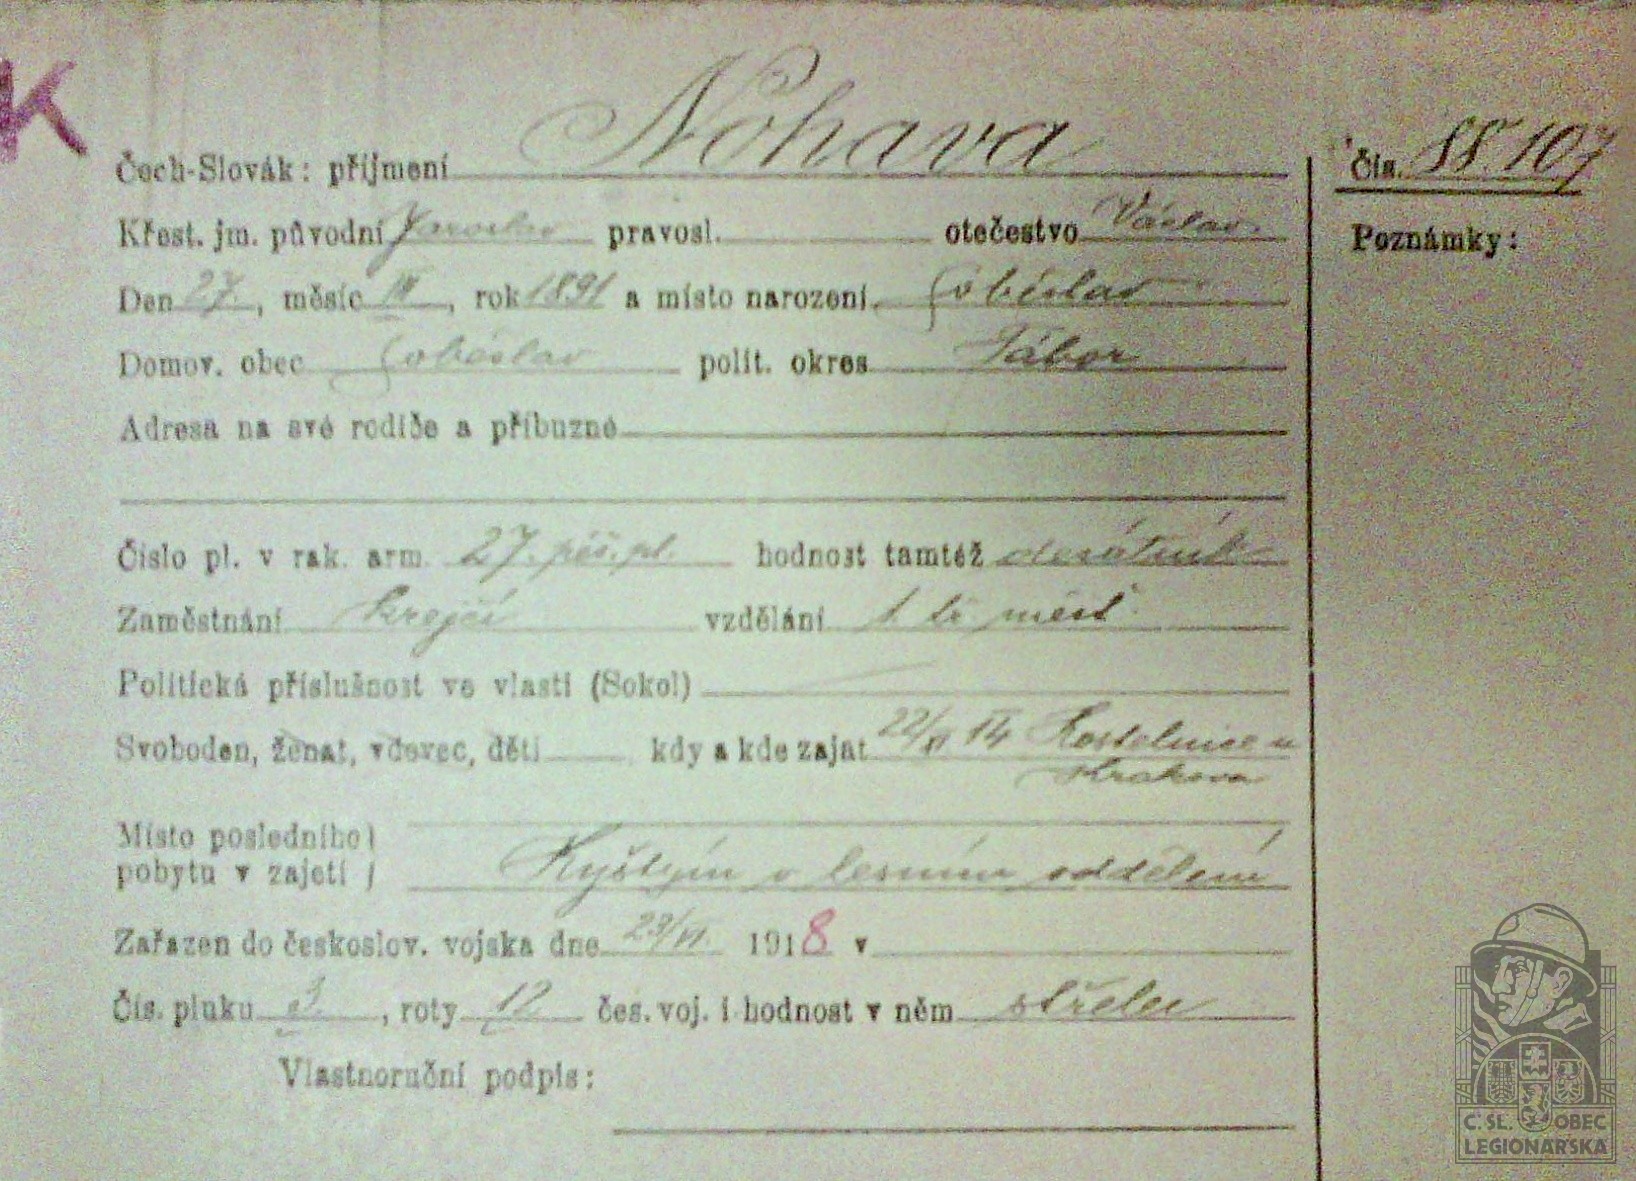 K
Čech-Slovák: příjmení Nohava
Čís. 88.107
Křest. jm. původní Jaroslav pravosl. otečestvo Václav
Poznámky:
Den 27., měsíc III, rok 1891 a místo narození. Soběslav
Domov. obec Soběslav polit. okres Tábor
Adresa na své rodiče a příbuzné
Číslo pl. v rak. arm. 27. pěš. pl. hodnost tamtéž desátník
Zaměstnání krejčí vzdělání 1. tř. měšť.
Politická příslušnost ve vlasti (Sokol)
Svoboden, ženat, vdovec, děti kdy a kde zajat 22/XI 14 Kostelnice u
Krakova
Místo posledního)
pobytu v zajetí ) Kyštým v lesním oddělení
Zařazen do českoslov. vojska dne 23/VI. 1918 v
Čís. pluku 3., roty 12 čes. voj. i hodnost v něm střelec
Vlastnoruční podpis:
Č. SL. OBEC
LEGIONÁŘSKÁ